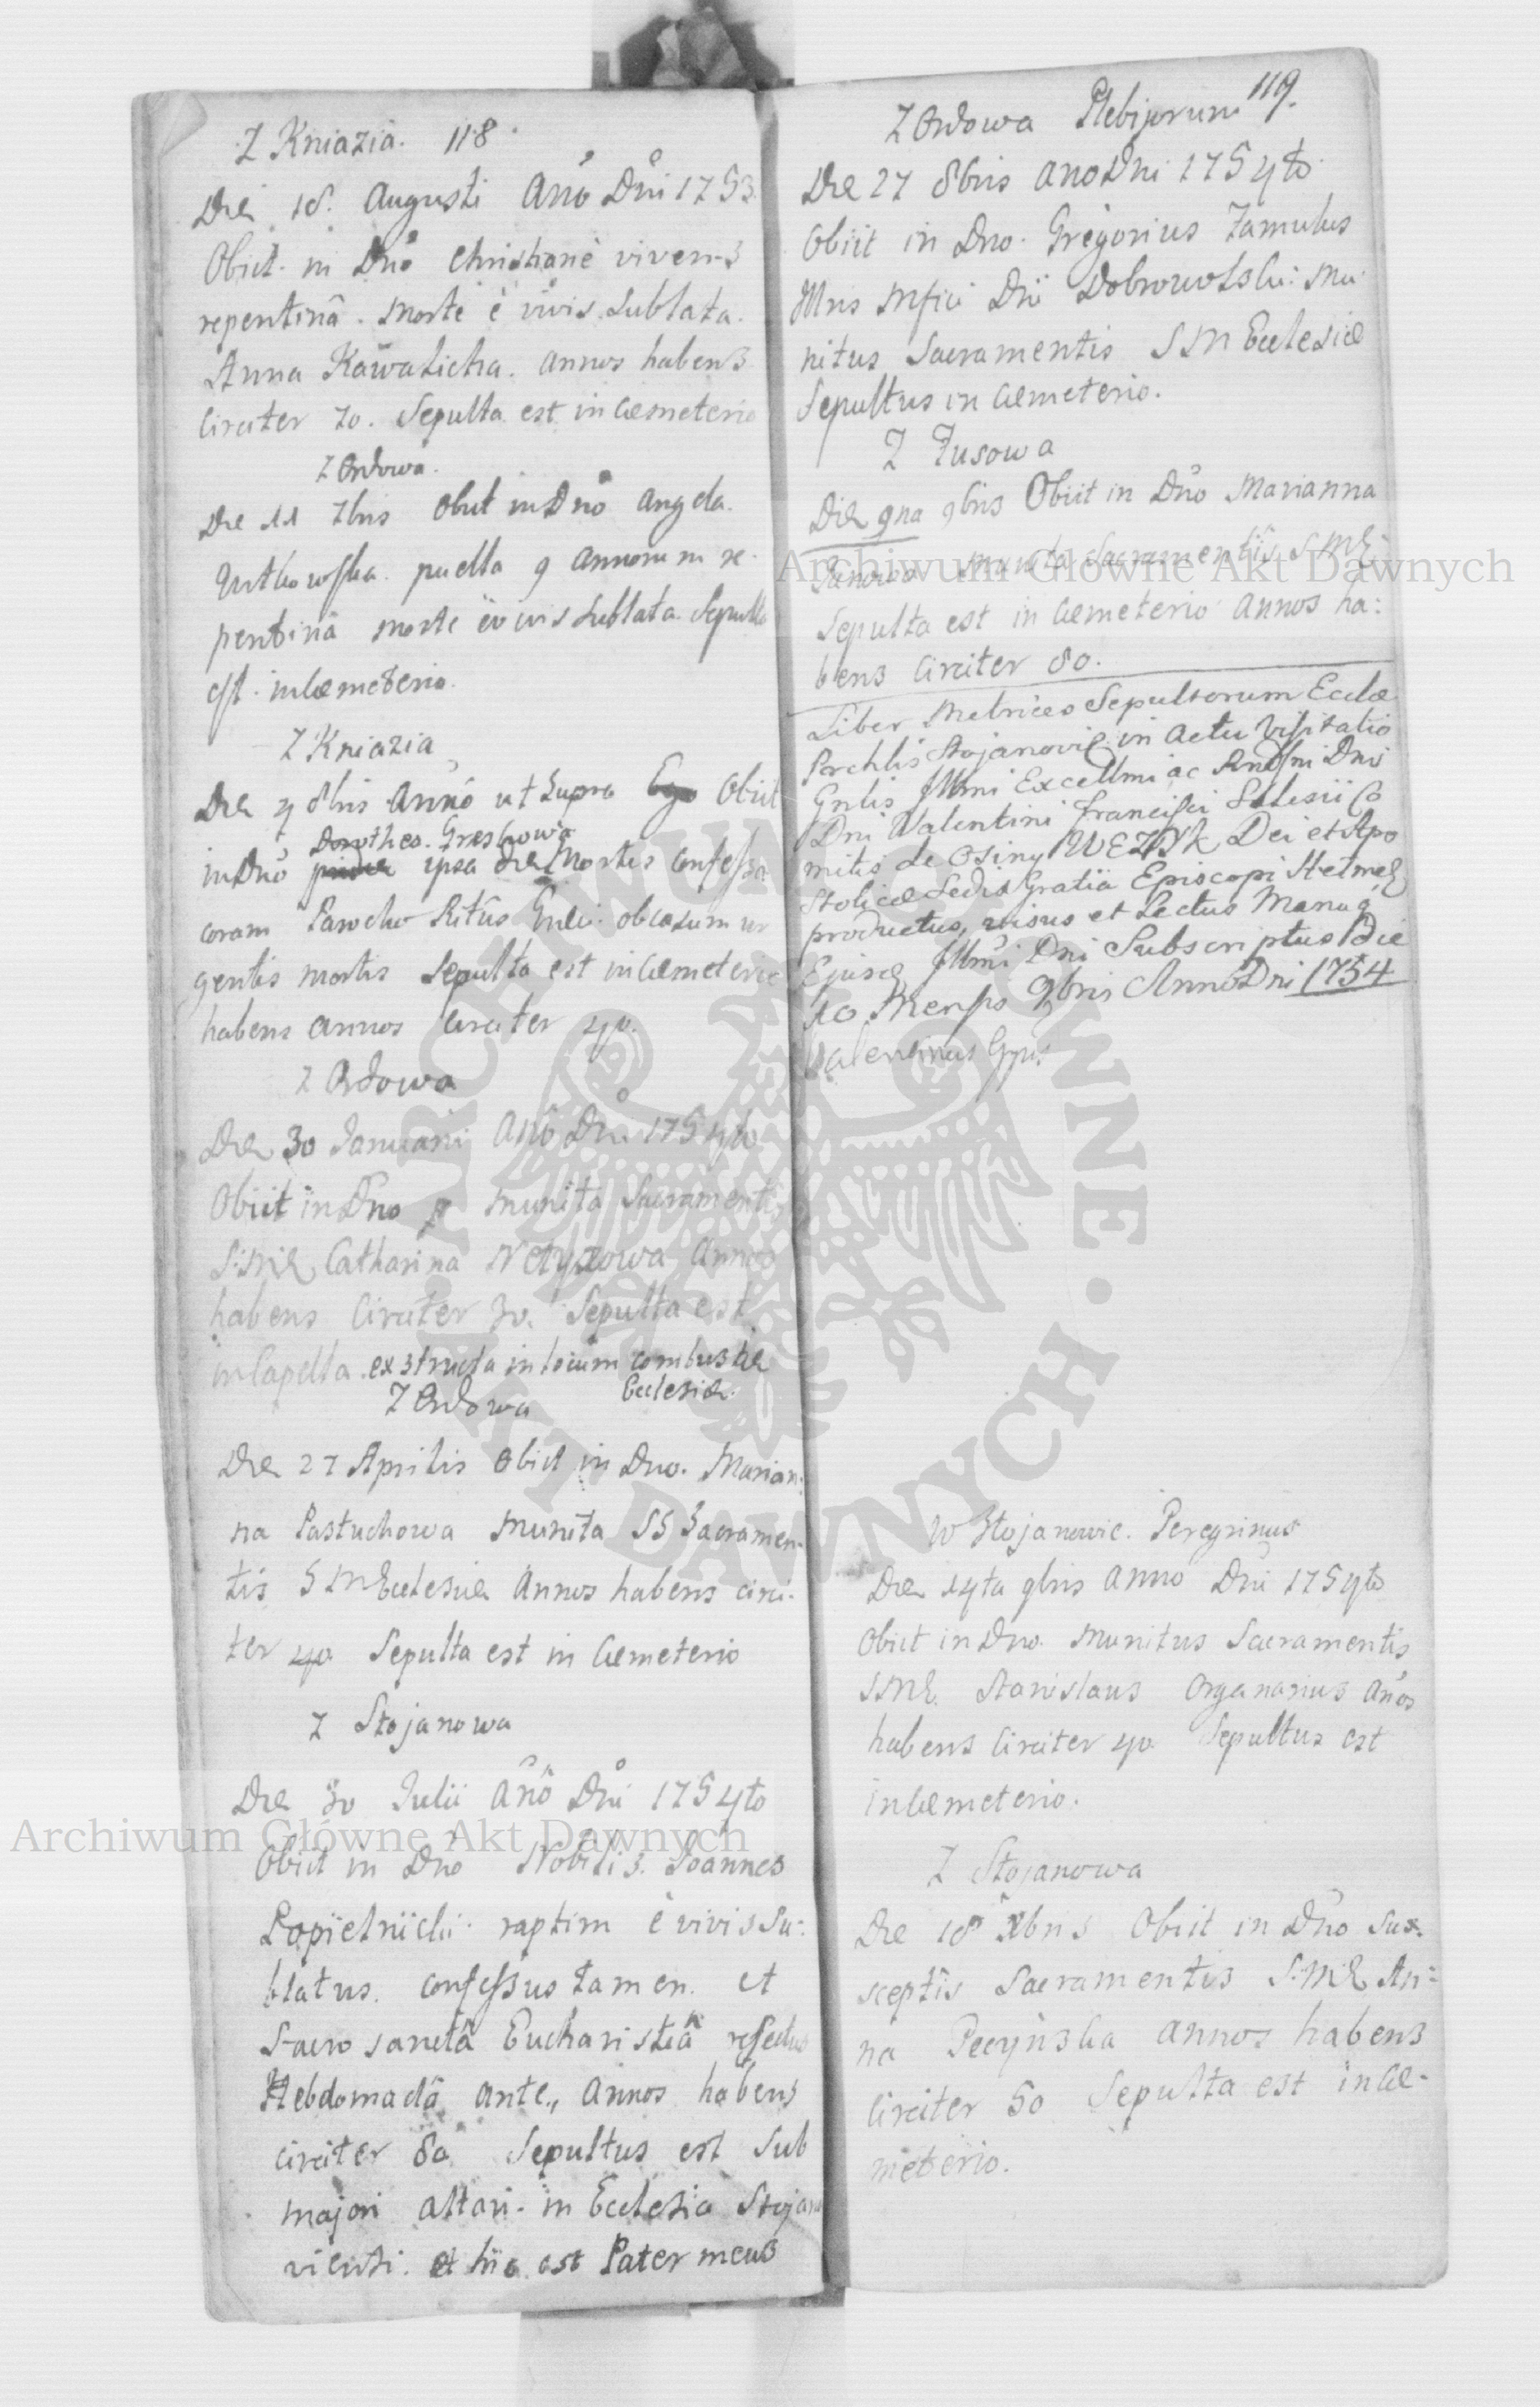 Z Kniazia. 118.
Die 18. Augusti Anō Dn̄i 1753.
Obiit. in Dn̄o Christianè vivens
repentinâ. morte è vivis sublata.
Anna Kawalicha. annos habens
circiter 70. Sepulta est in Cæmeterio
Z Ordowa.
Die 11 7bris obiit in Dn̄o Angela.
puella 9 annorum re-
pentinâ morte è vivis sublata. Sepulta
est. in Cæmeterio.
Z Kniazia
Die 4 8bris Annô ut supra Obiit
Dorothea. Greskowa
in Dn̄o ipsa die Mortis confessa
coram Parocho Ritûs Græci. ob casum ur
gentis mortis Sepulta est in Cæmeterio
habens annos circiter 40.
Z Ordowa
Die 30 Januarii Anō Dn̄i 1754to
Obiit in Dn̄o munita Sacramentis
S:M:E Catharina Netyxowa Annos
habens Circiter 30. Sepulta est
in Capella. exstructa in locum combustæ
Ecclesiæ.
Z Ordowa
Die 27 Aprilis obiit in Dno. Marian:
na Pastuchowa munita SS Sacramen-
tis S M Ecclesiæ Annos habens circi-
ter 40 Sepulta est in Cæmeterio
Z Stojanowa
Die 30 Julii Anō Dn̄i 1754to
Obiit in Dn̄o Nobilis. Joannes
Popielnicki. raptim è vivis su:
blatus. confessus tamen. et
Sacro sanctâ Eucharistiâ refectus
Hebdomadâ ante., Annos habens
circiter 80 Sepultus est sub
majori altari. in Ecclesia Stojano
viensi. et hic est Pater meus
Z Ordowa Plebijorum 119.
Die 27 8bris Ano Dni 1754to.
Obiit in Dno. Gregorius Famulus
Illris Mfici Dn̄i Dobrowolski: Mu
nitus Sacramentis S M Ecclesiæ
Sepultus in Cæmeterio.
Z Tusowa
Die 9na 9bris Obiit in Dn̄o Marianna
Janowa munita Sacramentis S.M.E:
Sepulta est in Cæmeterio Annos ha:
bens Circiter 80.
Liber Metrices Sepultorum Ecclæ
Parchlis Stojanovien in Actu Visitatio
Gnlis Illmi Excellmi ac Rndsmi Dni
Dni Valentini Francisci Salesii Co
mitis de Osiny WĘŻYK Dei et Apo
stolicæ Sedis Gratiâ Episcopi
productus, visus et Lectus Manuq
Ejusdē Illmi Dni Subscriptus Die
10 Mensis 9bris Anno Dni 1754
Valentinus Eppus
W Stojanowie. Peregrinus
Die 14ta 9bris Anno Dn̄i 1754to
Obiit in Dno. Munitus Sacramentis
SME. Stanislaus Organarius Anos
habens Circiter 40 Sepultus est
in Cæmeterio.
Z Stojanowa
Die 18 Xbris Obiit in Dn̄o sus-
sceptis Sacramentis S:M:E An:
na Pecynska annos habens
Circiter 50 Sepulta est in Cæ-
meterio.
Archiwum Główne Akt Dawnych
Archiwum Główne Akt Dawnych
ARCHIWUM GŁÓWNE • AKT DAWNYCH •